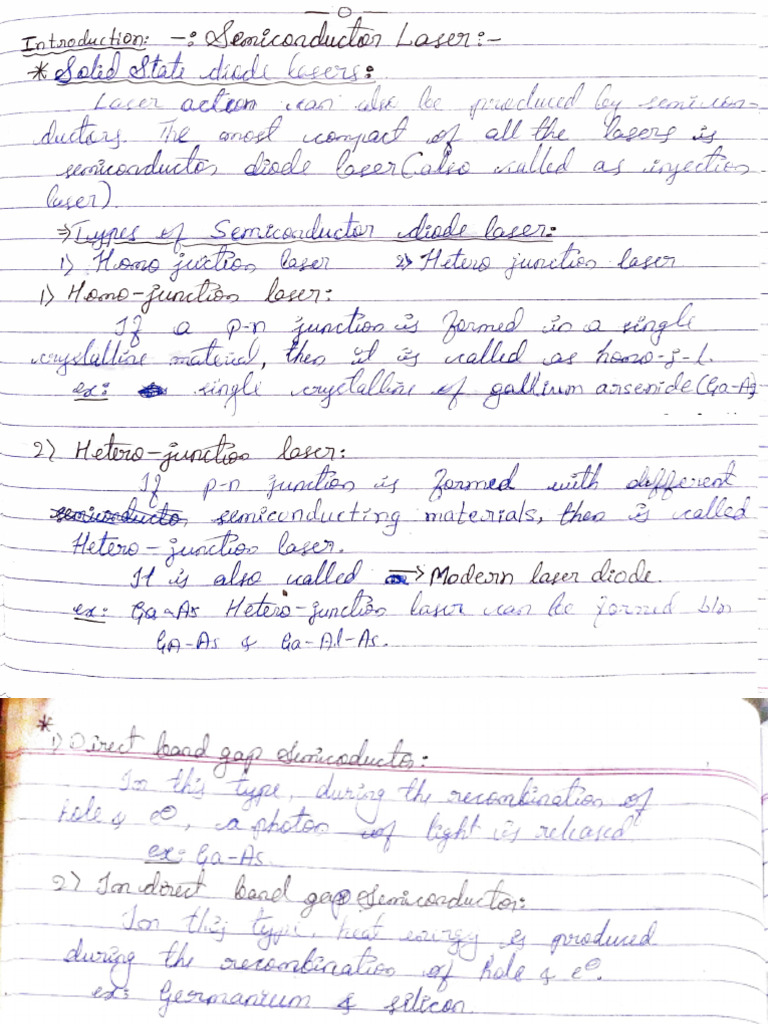 — O —
Introduction: -: Semiconductor Laser:-
* Solid State diode lasers:
Laser action can also be produced by semicon-
ductors. The most compact of all the lasers is
semiconductor diode laser (also called as injection
laser).
⇒ Types of Semiconductor diode laser:
1) Homo juction laser 2) Hetero junction laser
1) Homo-junction laser:
If a p-n junction is formed in a single
crystalline material, then it is called as homo-j-l.
ex: single crystalline of gallium arsenide (Ga-As)
2) Hetero-junction laser:
If p-n junction is formed with different
semiconducto semiconducting materials, then is called
Hetero-junction laser.
It is also called → Modern laser diode.
ex: Ga-As Hetero-junction laser can be formed b/n
GA-As & Ga-Al-As.
*
1) Direct band gap semicoductor:
In this type, during the recombination of
hole & e⊖, a photon of light is released
ex: Ga-As.
2) In direct band gap semiconductor:
In this type, heat energy is produced
during the recombination of hole & e⊖.
ex: Germanium & silicon.